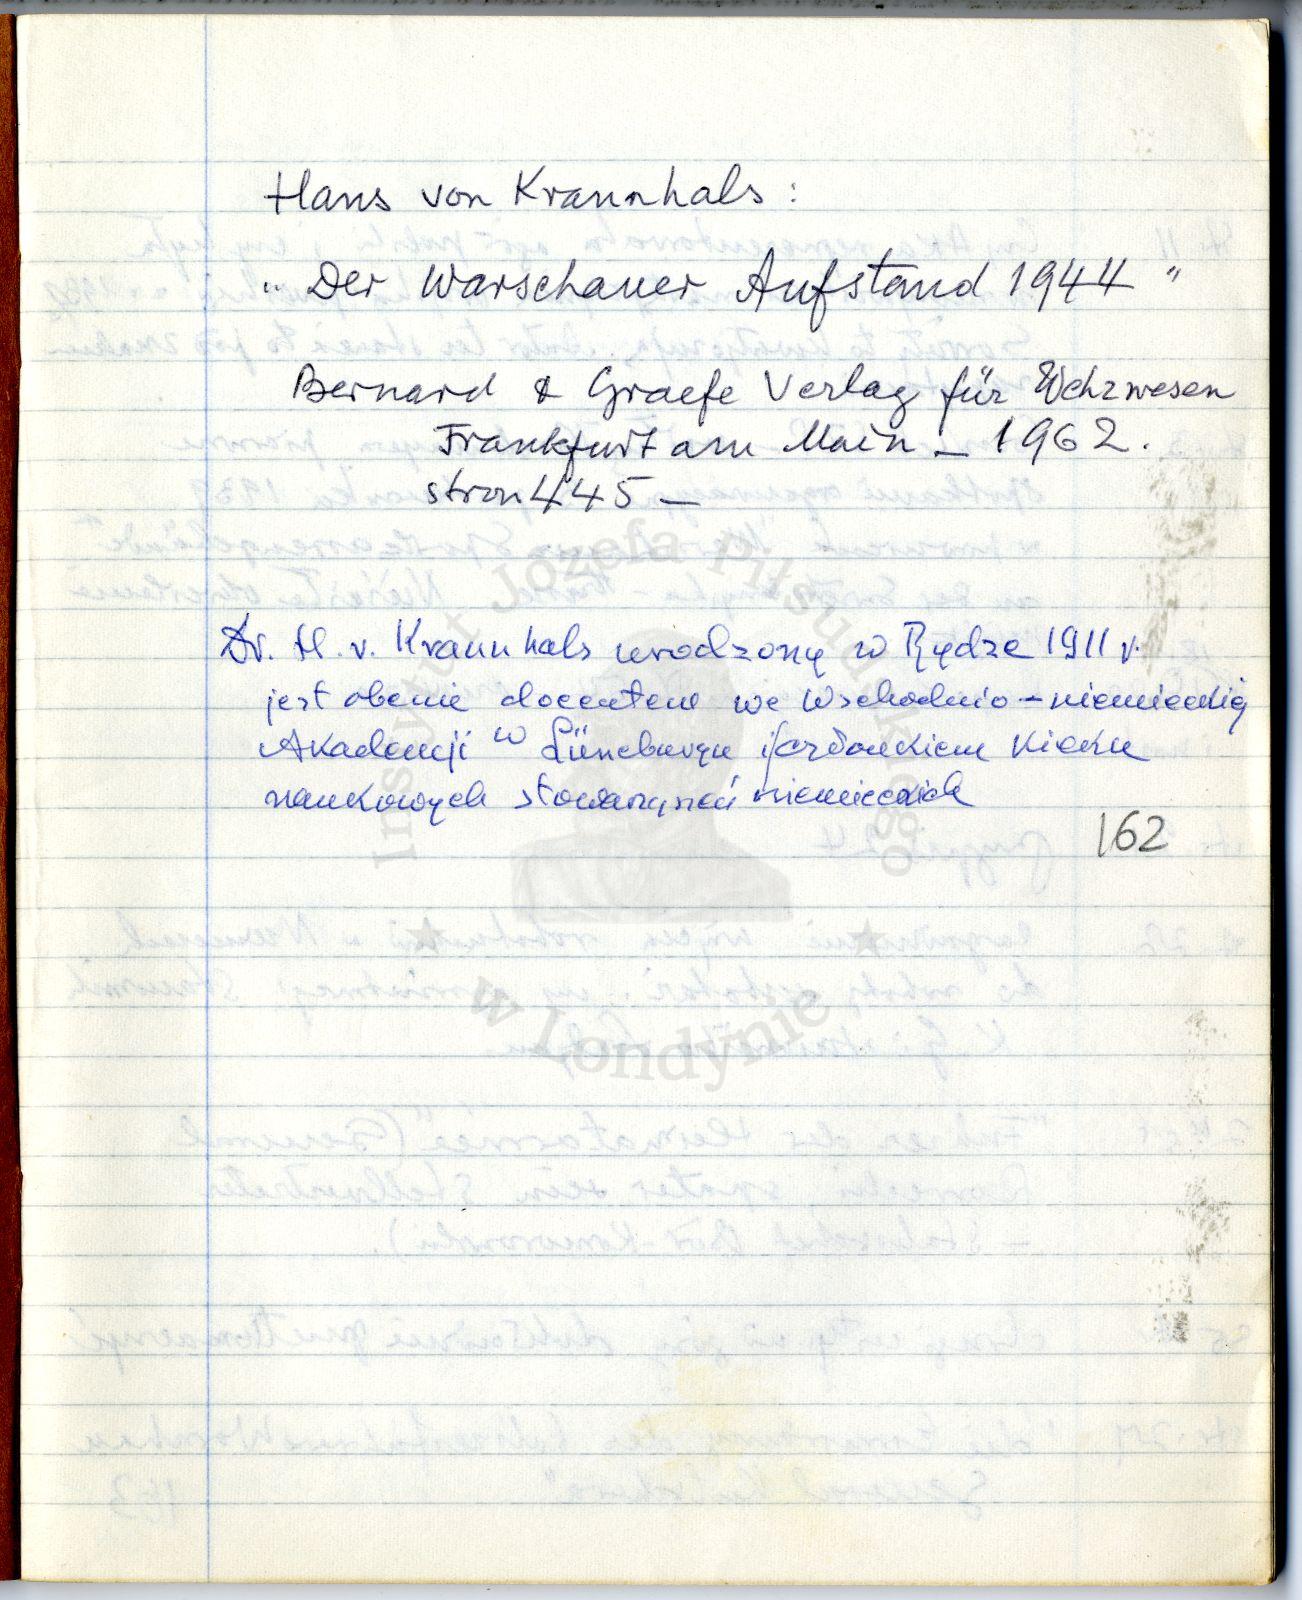 Hans von Krannhals:
„Der Warschauer Aufstand 1944"
Bernard & Graefe Verlag für Wehrwesen
Frankfurt am Main – 1962.
stron 445 –
Dr. H. v. Krannhals urodzony w Rydze 1911 r.
jest obecnie docentem we Wschodnio-niemieckiej
Akademji w Lüneburgu i członkiem kieku
naukowych stowarzyszeń niemieckich
162
Instytut Józefa Piłsudskiego
w Londynie